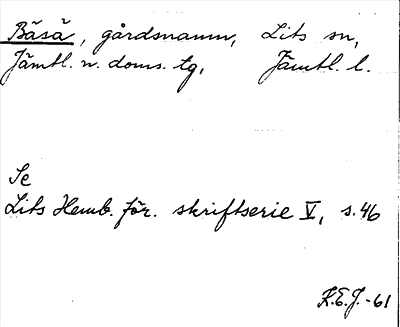 Båså, gårdsnamn, Lits sn,
Jämtl. n. doms. tg, Jämtl. l.
Se
Lits Hemb. för. skriftserie V, s. 46
K.E.J.-61